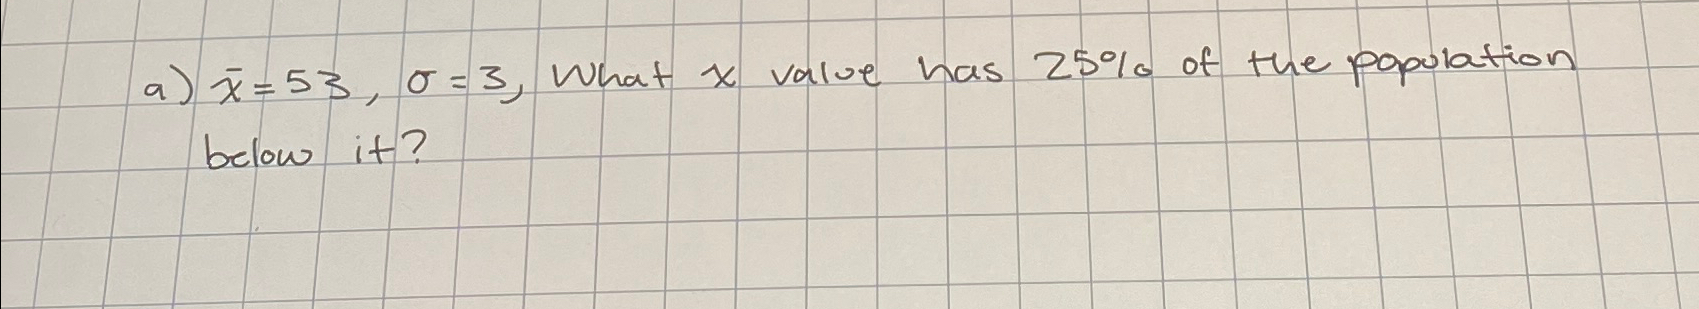 a) x̄ = 53, σ = 3, What x value has 25% of the population
below it?